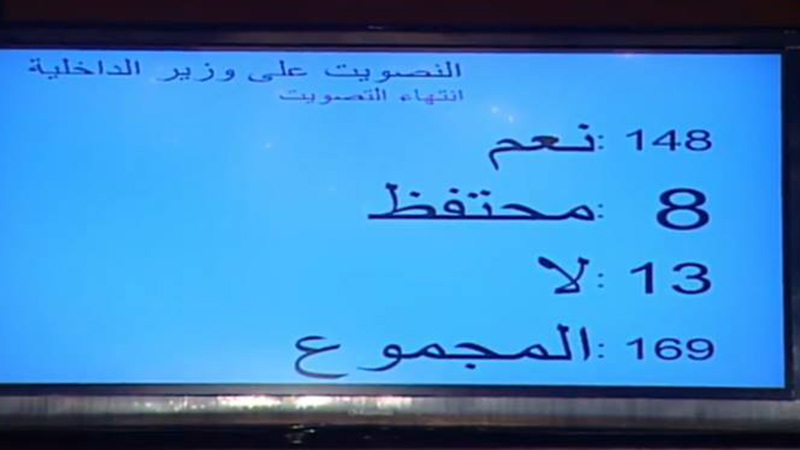 التصويت على وزير الداخلية
انتهاء التصويت
نعم: 148
محتفظ: 8
لا: 13
المجموع: 169